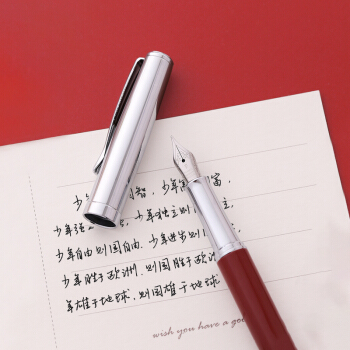 少年智,少年富,
少年强 少年独立则 主,
少年自由则国自由,少年进步则
少年胜于欧洲,则国胜于欧洲
年雄于地球,则国雄于地球
wish you have a go